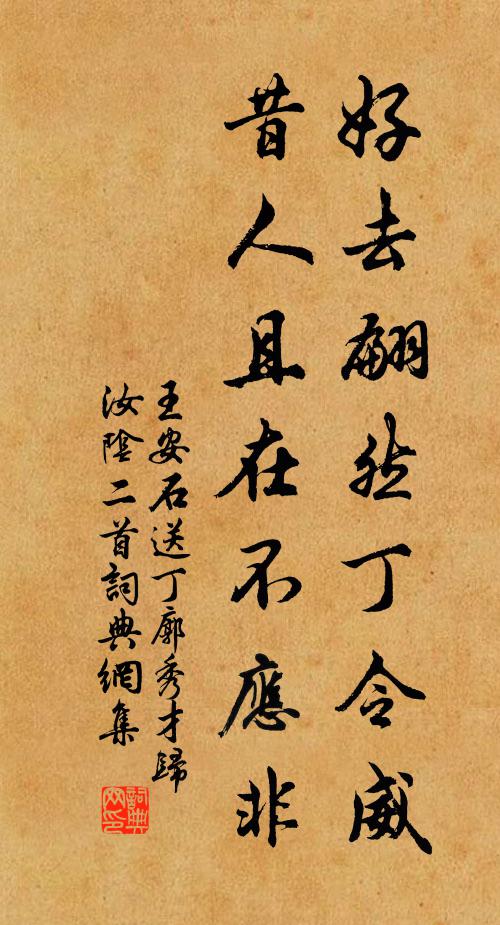 好去翩然丁令威
昔人且在不應非
王安石送丁廓秀才歸
汝陰二首詞典網集
詞典網印